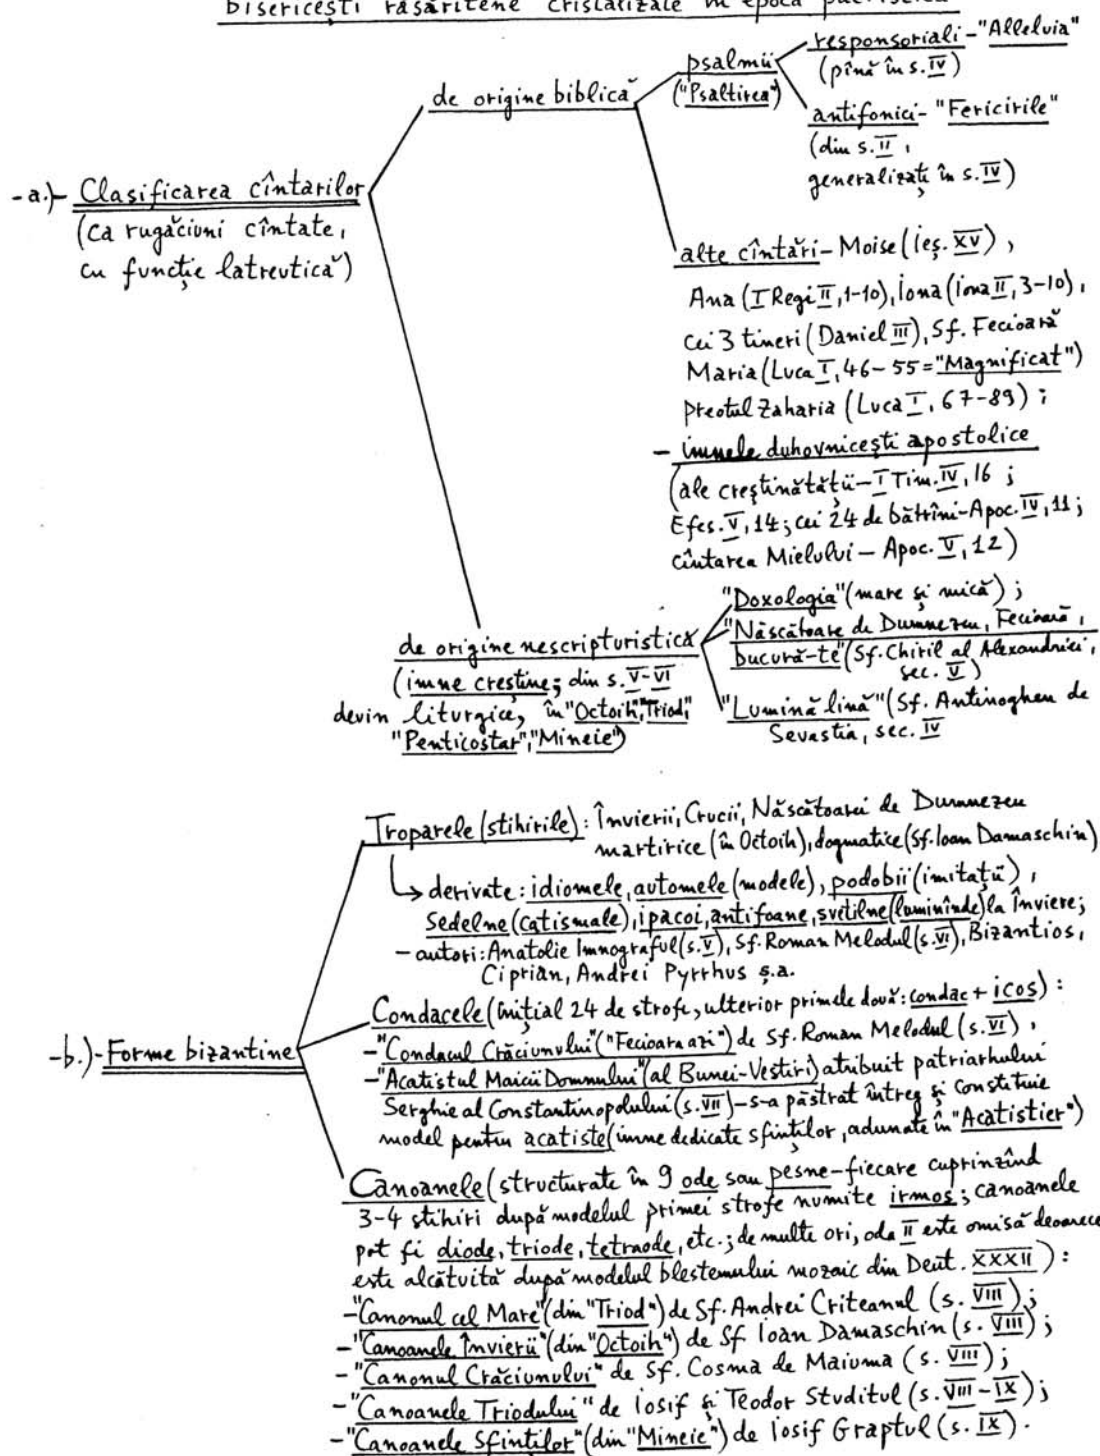 bisericești răsăritene cristalizate în epoca patristică
-a.)- Clasificarea cîntărilor
(ca rugăciuni cîntate,
cu funcție latreutică)
de origine biblică
psalmii
("Psaltirea")
responsoriali - "Alleluia"
(pînă în s. IV)
antifonici - "Fericirile"
(din s. II,
generalizați în s. IV)
alte cîntări - Moise (Ieș. XV),
Ana (I Regi II, 1-10), Iona (Iona II, 3-10),
cei 3 tineri (Daniel III), Sf. Fecioară
Maria (Luca I, 46-55 = "Magnificat")
preotul Zaharia (Luca I, 67-89);
- imnele duhovnicești apostolice
(ale creștinătății - I Tim. IV, 16;
Efes. V, 14; cei 24 de bătrîni - Apoc. IV, 11;
cîntarea Mielului - Apoc. V, 12)
de origine nescripturistică
(imne creștine; din s. V-VI
devin liturgice, în "Octoih", "Triod",
"Penticostar", "Mineie")
"Doxologia" (mare și mică);
"Născătoare de Dumnezeu, Fecioară,
bucură-te" (Sf. Chiril al Alexandriei,
sec. V)
"Lumină lină" (Sf. Antinoghen de
Sevastia, sec. IV
-b.)- Forme bizantine
Troparele (stihirile): Învierii, Crucii, Născătoarei de Dumnezeu
martirice (în Octoih), dogmatice (Sf. Ioan Damaschin)
↳ derivate: idiomele, automele (modele), podobii (imitații),
sedelne (catismale), ipacoi, antifoane, svetilne (luminînde) la Înviere;
- autori: Anatolie Imnograful (s. V), Sf. Roman Melodul (s. VI), Bizantios,
Ciprian, Andrei Pyrrhus ș.a.
Condacele (inițial 24 de strofe, ulterior primele două: condac + icos):
- "Condacul Crăciunului" ("Fecioara azi") de Sf. Roman Melodul (s. VI),
- "Acatistul Maicii Domnului" (al Bunei-Vestiri) atribuit patriarhului
Serghie al Constantinopolului (s. VII) - s-a păstrat întreg și constituie
model pentru acatiste (imne dedicate sfinților, adunate în "Acatistier")
Canoanele (structurate în 9 ode sau pesne - fiecare cuprinzînd
3-4 stihiri după modelul primei strofe numite irmos; canoanele
pot fi diode, triode, tetraode, etc.; de multe ori, oda II este omisă deoarece
este alcătuită după modelul blestemului mozaic din Deut. XXXII):
- "Canonul cel Mare" (din "Triod") de Sf. Andrei Criteanul (s. VIII);
- "Canoanele Învierii" (din "Octoih") de Sf Ioan Damaschin (s. VIII);
- "Canonul Crăciunului" de Sf. Cosma de Maiuma (s. VIII);
- "Canoanele Triodului" de Iosif și Teodor Studitul (s. VIII-IX);
- "Canoanele Sfinților" (din "Mineie") de Iosif Graptul (s. IX).